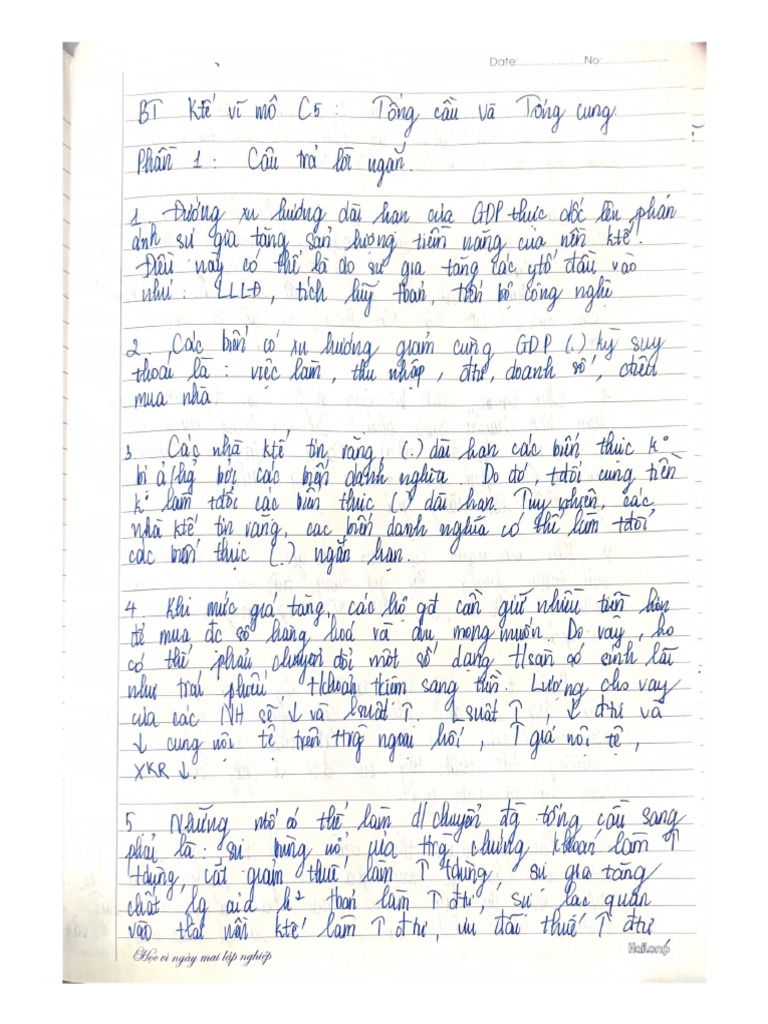 Date:.................... No:....................
BT Ktế vĩ mô C5 : Tổng cầu và Tổng cung
Phần 1 : Câu trả lời ngắn.
1. Đường xu hướng dài hạn của GDP thực dốc lên phản
ánh sự gia tăng sản lượng tiềm năng của nền ktế.
Điều này có thể là do sự gia tăng các ytố đầu vào
như : LLLĐ, tích lũy toan, tiến bộ công nghệ.
2. Các biến có xu hướng giảm cùng GDP (.) kỳ suy
thoái là : việc làm, thu nhập, đtư, doanh số,
mua nhà.
3. Các nhà ktế tin rằng, (.) dài hạn các biến thực k°
bị a/hg bởi các biến danh nghĩa. Do đó, tđổi cung tiền
k° làm tđổi các biến thực (.) dài hạn. Tuy nhiên, các
nhà ktế tin rằng, các biến danh nghĩa có thể làm tđổi
các biến thực (.) ngắn hạn.
4. Khi mức giá tăng, các hộ gđ cần giữ nhiều tiền hơn
để mua đc số hàng hoá và dvụ mong muốn. Do vậy, họ
có thể phải chuyển đổi một số dạng t/sản có sinh lãi
như trái phiếu, t/khoản t/kiệm sang tiền. Lượng cho vay
của các NH sẽ ↓ và lsuất ↑. Lsuất ↑, ↓ đtư và
↓ cung nội tệ trên ttrg ngoại hối, ↑ giá nội tệ,
XKR ↓.
5. Những ntố có thể làm d/chuyển đg tổng cầu sang
phải là : sự bùng nổ của ttrg chứng khoán làm ↑
tdùng, cắt giảm thuế làm ↑ tdùng, sự gia tăng
chất lg h² toan làm ↑ đtư, sự lạc quan
vào tlai nền ktế làm ↑ đtư, ưu đãi thuế ↑ đtư
Học vì ngày mai lập nghiệp HaiLong